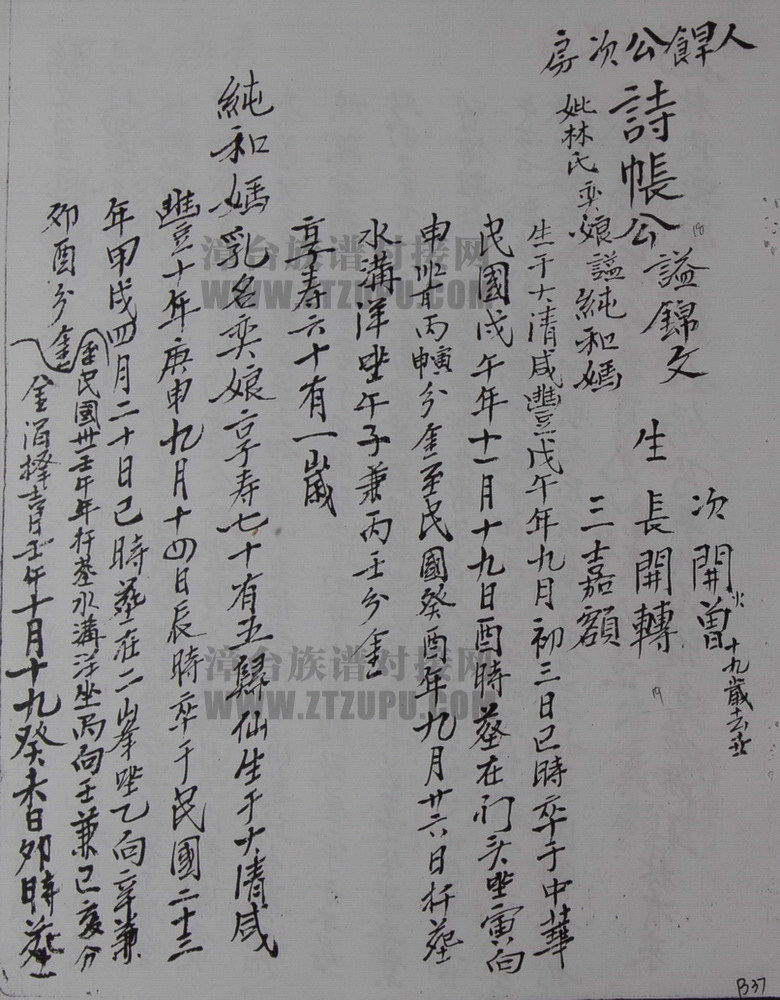 房次公餫人
詩帳公謚錦文
妣林氏奕娘謚純和媽
次開曾 十九歲去世
生長開轉
三嘉額
生于大清咸豐戊午年九月初三日巳時卒于中華
民國戊午年十一月十九日酉時葬在们头坐寅向
申兼丙寅分金至民國癸酉年九月廿六日拆葬
水溝洋坐午子兼丙壬分金
享寿六十有一歲
純和媽乳名奕娘享寿七十有五歸仙生于大清咸
豐十年庚申九月十四日辰時卒于民國二十三
年甲戌四月二十日巳時葬在二峯坐乙向辛兼
卯酉分金
至民國卅一壬午年拆塟水溝洋坐丙向壬兼巳亥分
金涓擇吉壬午十月十九癸未日卯時葬
漳台族谱对接网
WWW.ZTZUPU.COM
漳台族谱对接网
WWW.ZTZUPU.COM
B37